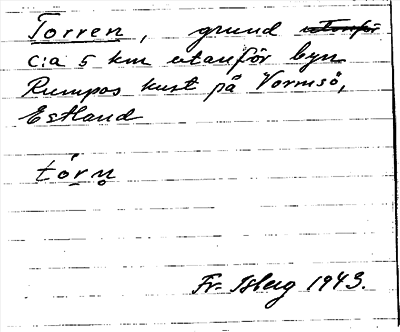 Torren, grund utanför
c:a 5 km utanför byn
Rumpos kust på Vormsö,
Estland
tórṇ
Fr. Isberg 1943.